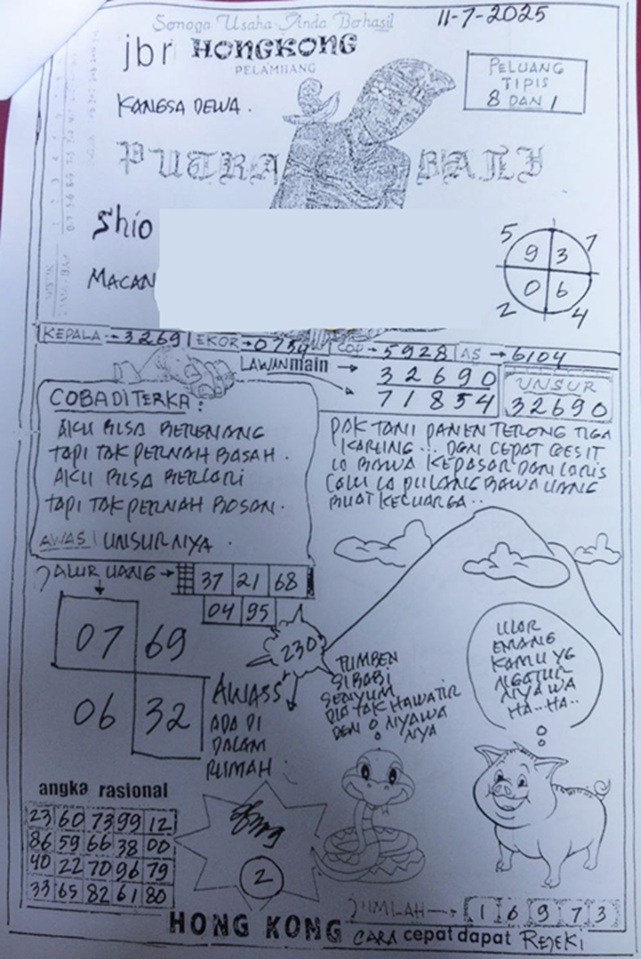 Semoga Usaha Anda Berhasil
11-7-2025
jbr HONGKONG
PELAMBANG
PELUANG
TIPIS
8 DAN 1
KANGSA DEWA.
PUTRA BALI
Shio
MACAN
5 9 3 7
2 0 6 4
KEPALA → 3269 EKOR → 0754 COP → 5928 AS → 6104
LAWAN main → 32690
71854
UNSUR
32690
COBA DITERKA:
AKU BISA BERENANG
TAPI TAK PERNAH BASAH.
AKU BISA BERLARI
TAPI TAK PERNAH BOSAN.
AWAS! UNSURNIYA.
PAK TANI PANEN TERONG TIGA
KARUNG... DGN CEPAT GESIT
IA BAWA KEPASAR DAN LARIS
LALU IA PULANG BAWA UANG
BUAT KELUARGA..
JALUR UANG → 37 21 68
04 95
07 69
06 32
230
AWASS
ADA DI
DALAM
RUMAH.
TUMBEN
SI BABI
SENYUM
DIA TAK HAWATIR
DGN NYAWA
NYA
ULAR
EMANG
KAMU YG
NGATUR
NYAWA
HA..HA..
angka rasional
23 60 73 99 12
86 59 66 38 00
40 22 70 96 79
33 65 82 61 80
2
JUMLAH → 1 6 9 7 3
HONG KONG CARA cepat dapat REJEKI